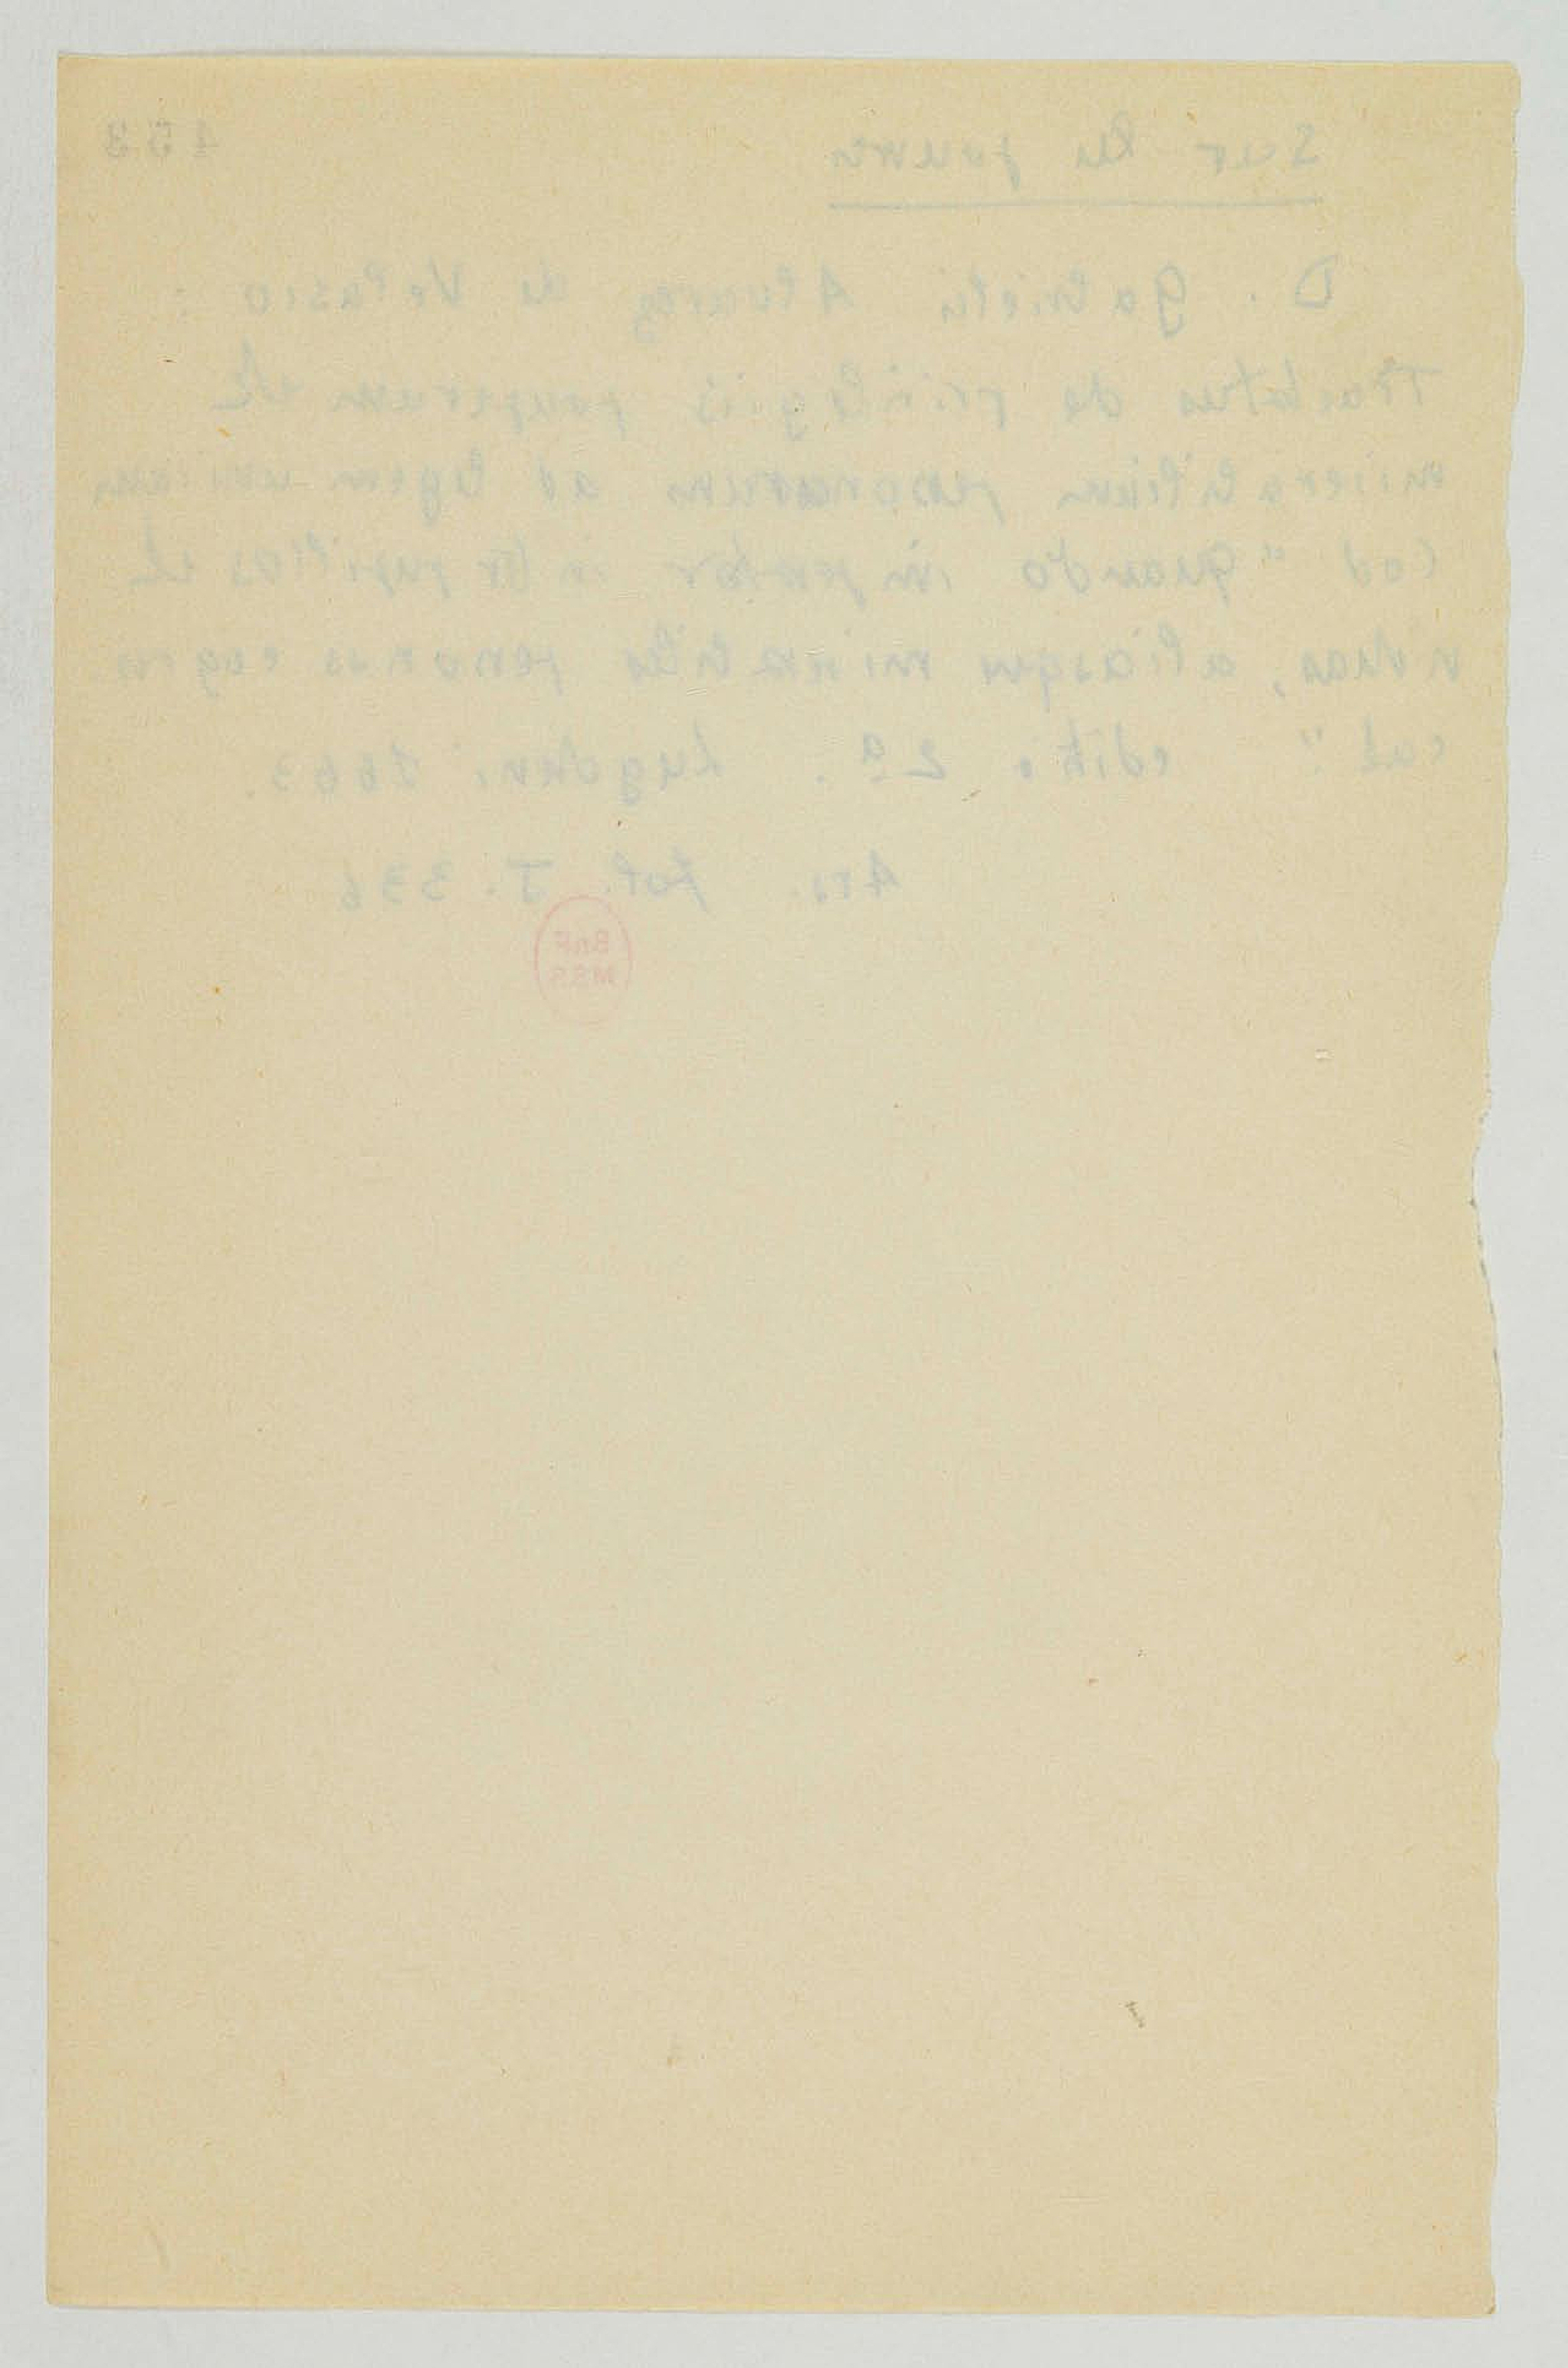 453
Sur les pauvres
D. Gabrielis Alvarez de Velasco :
Tractatus de privilegiis pauperum et
miserabilium personarum ad legem unicam
Cod "quando imperator inter pupillos et
viduas, aliasque miserabiles personas cogno
cat" editio 2a. Lugduni 1663.
Ars. fol. J. 336
BnF
MSS